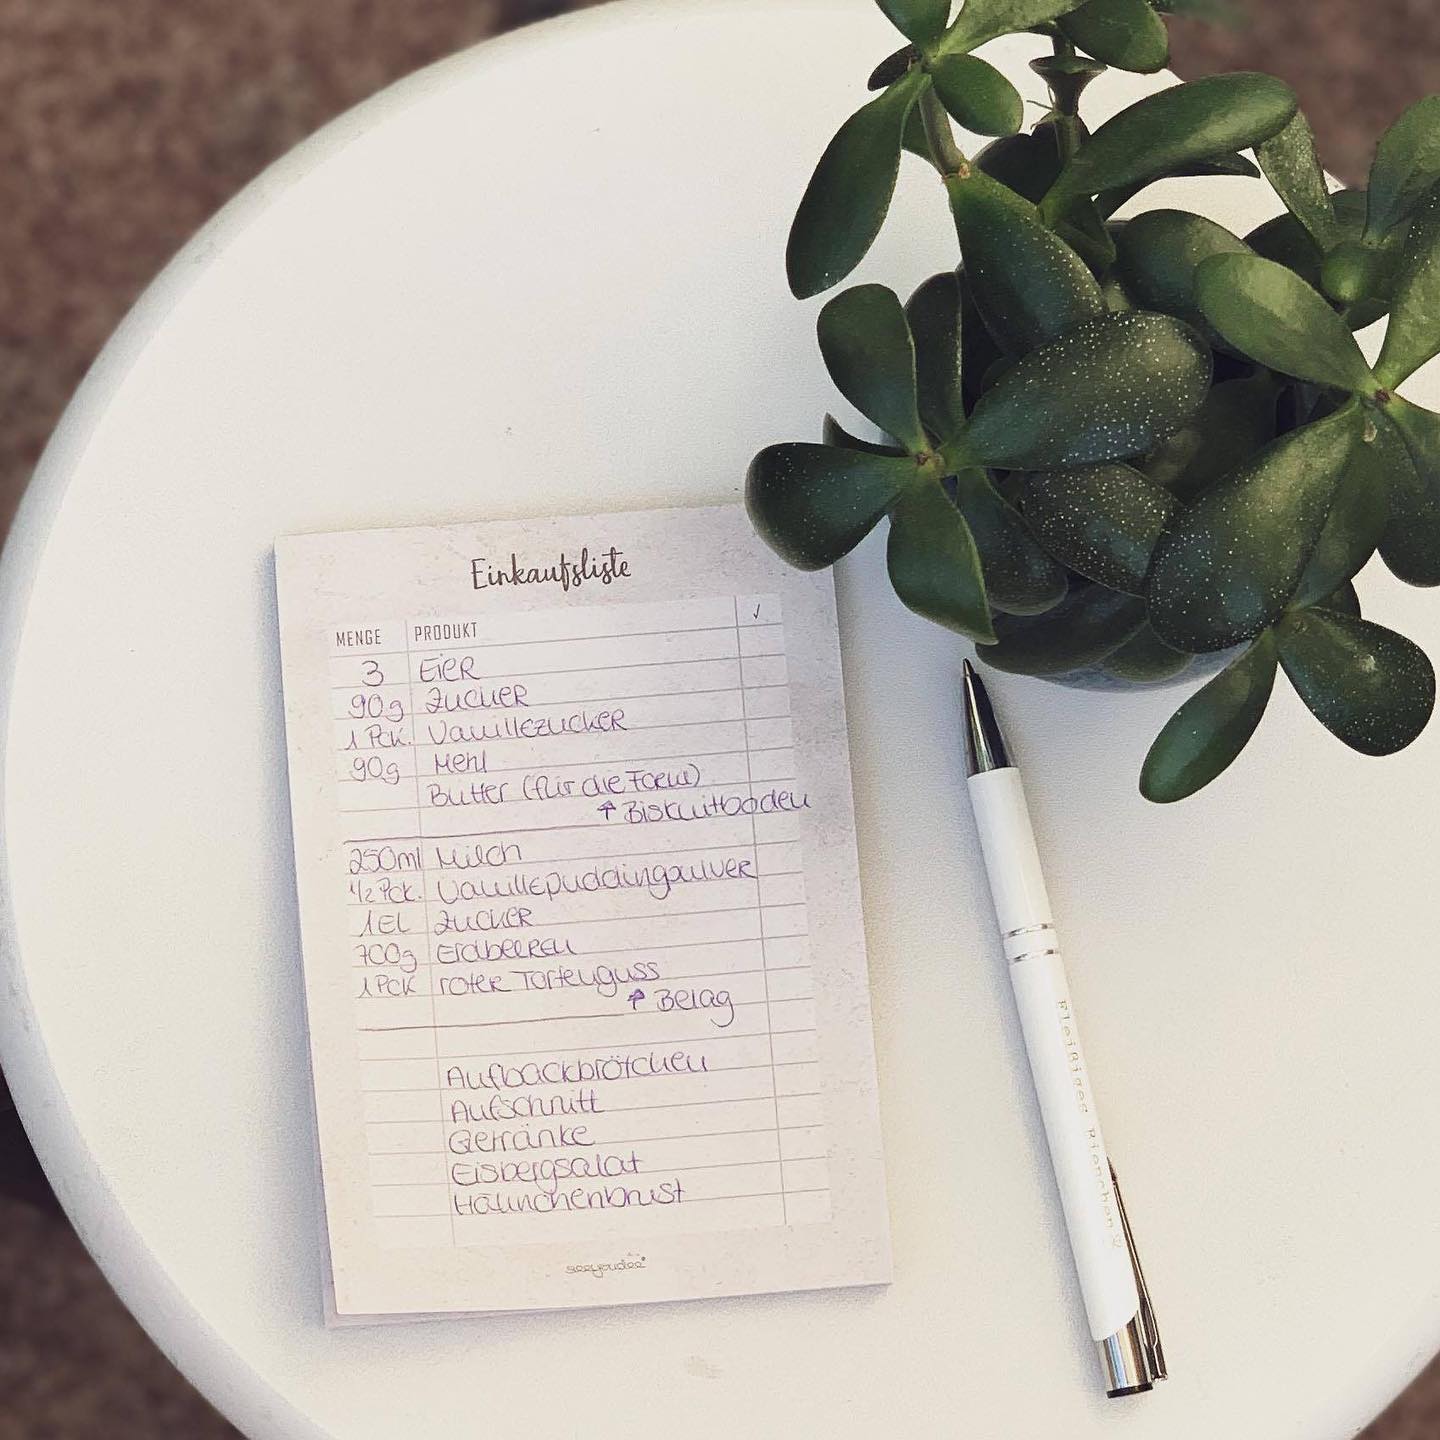 Einkaufsliste
MENGE PRODUKT ✓
3 Eier
90g Zucker
1 Pck. Vanillezucker
90g Mehl
Butter (für die Form)
↑ Biskuitboden
250ml Milch
1/2 Pck. Vanillepuddingpulver
1 EL Zucker
700g Erdbeeren
1 Pck roter Tortenguss
↑ Belag
Aufbackbrötchen
Aufschnitt
Getränke
Eisbergsalat
Hähnchenbrust
seeyoudee
Fleißiges Bienchen